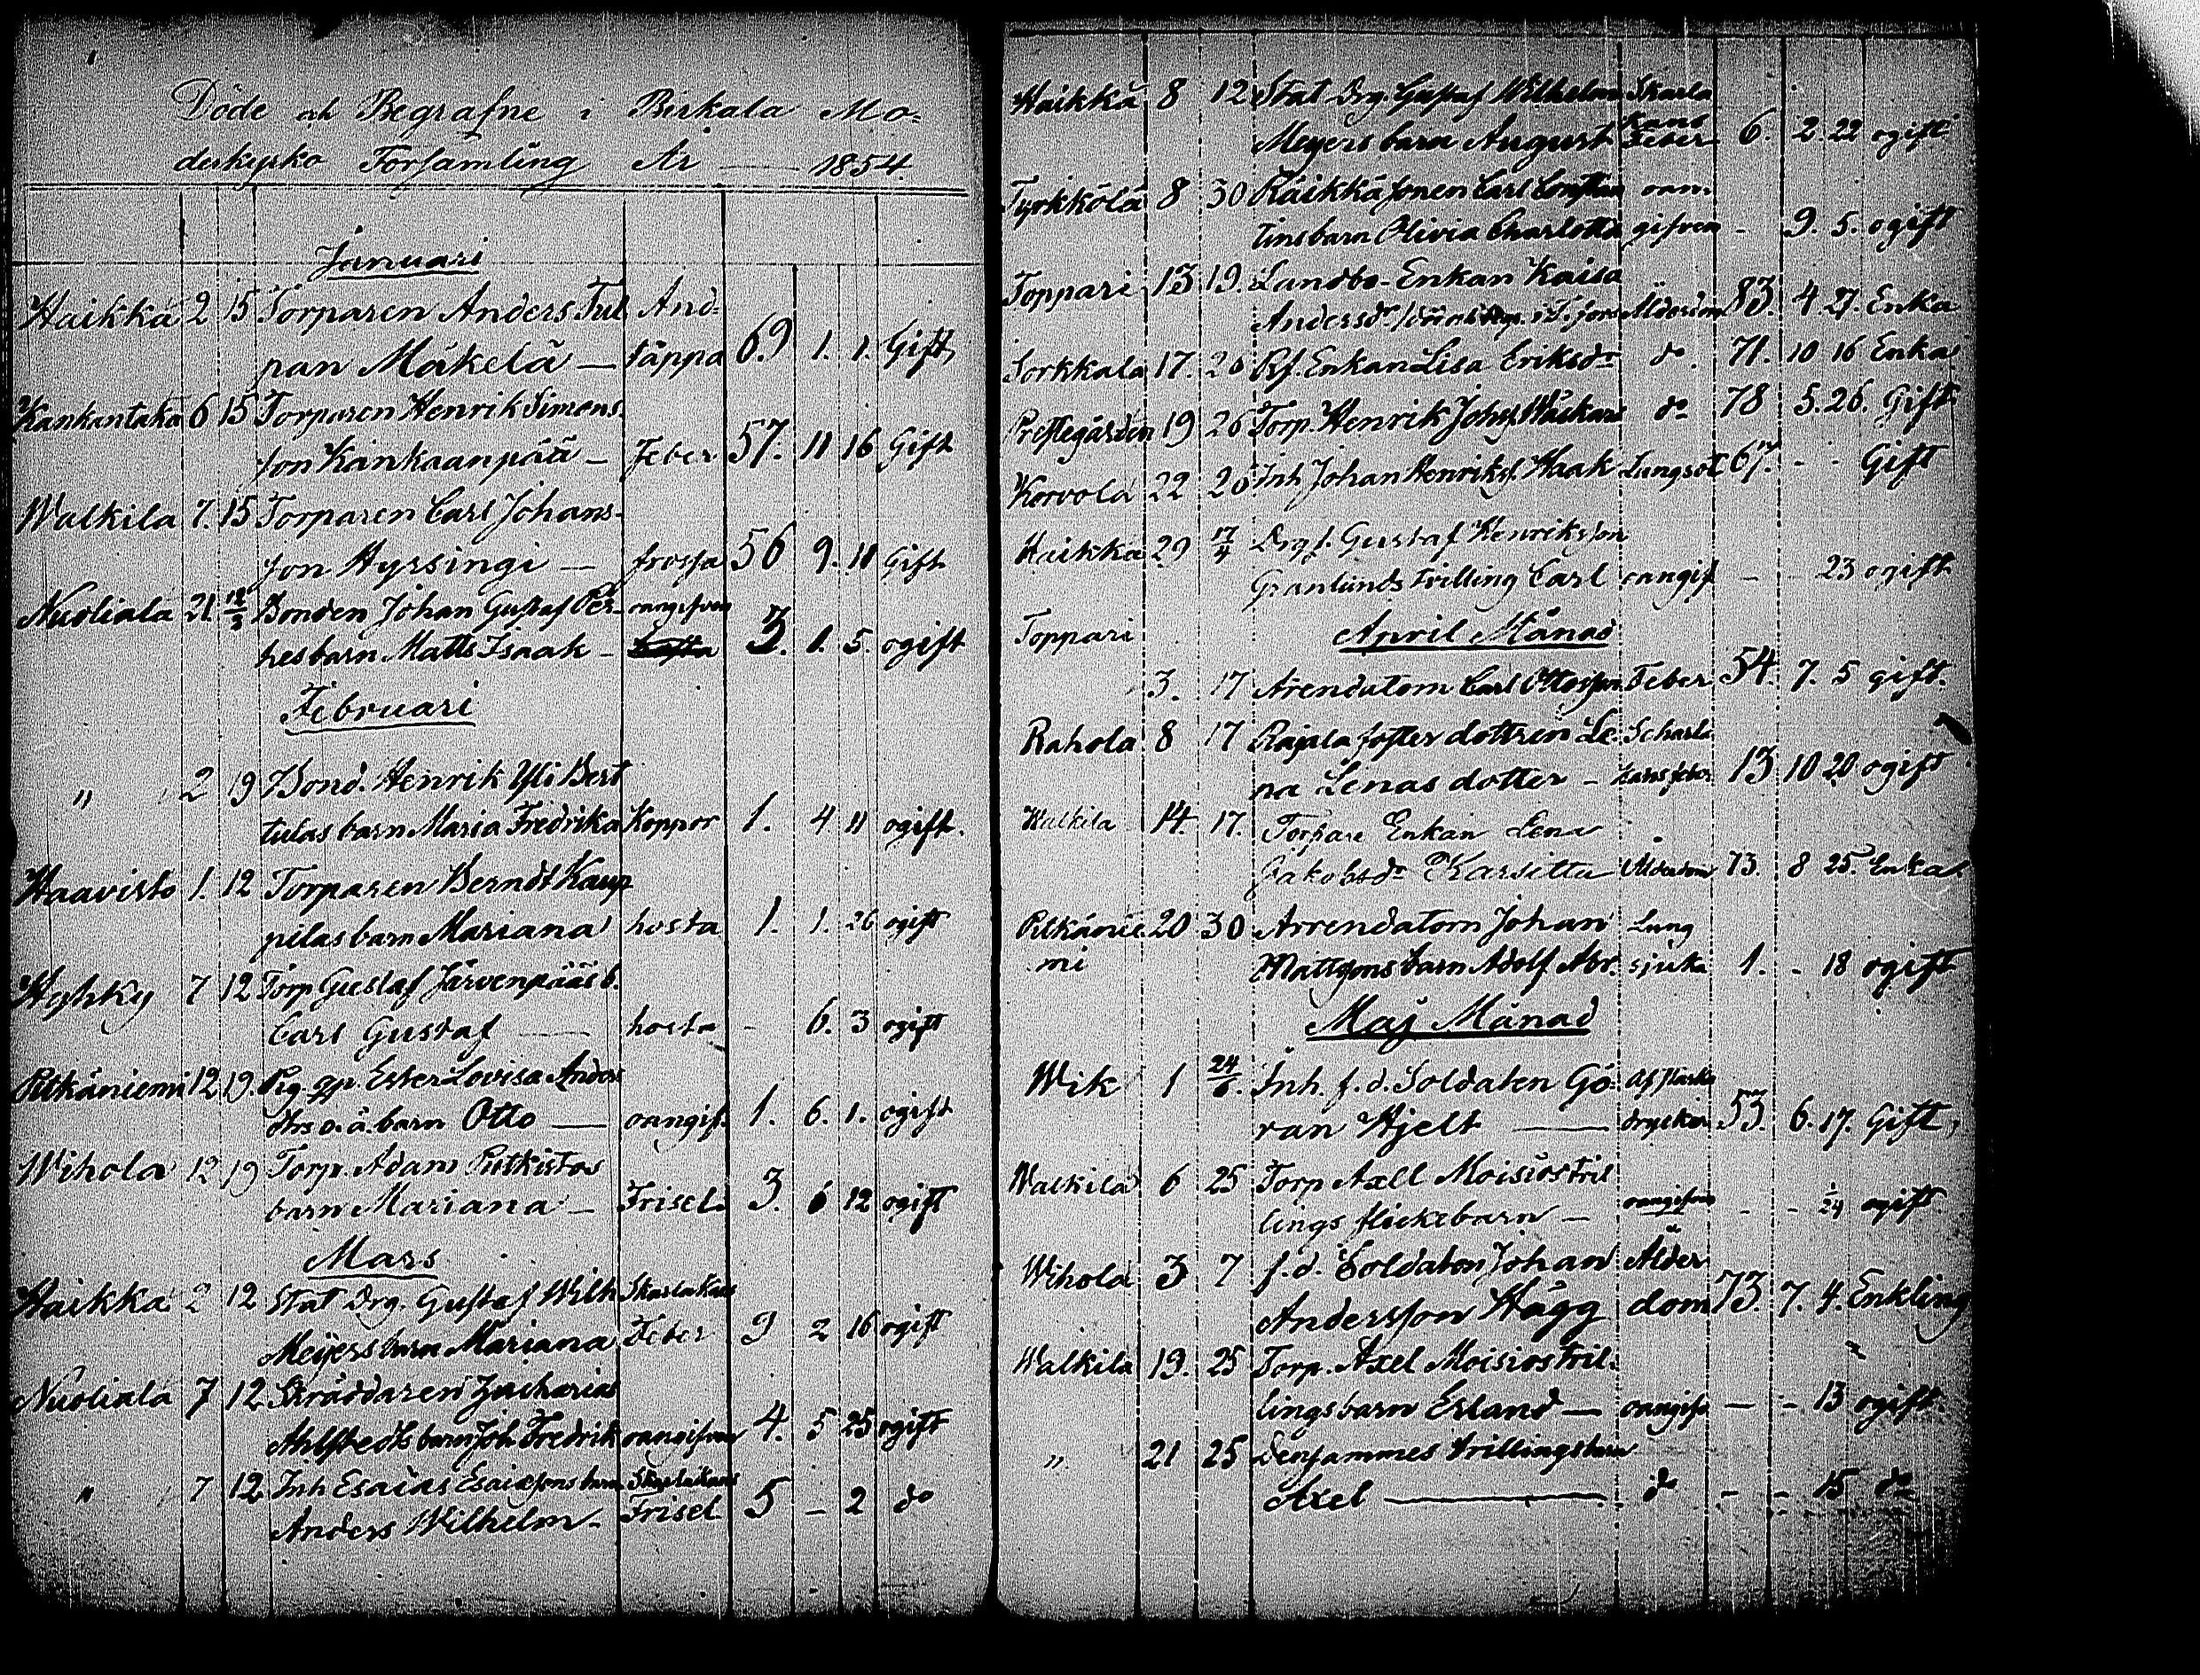 Döde och Begrafne i Birkala Mo-
derkyrko Församling År — 1854.
Januari
Haikka 2 15 Torparen Anders Tul And-
pan Mäkelä — täppa 69 1. 1. Gift
Kankantaka 6 15 Torparen Henrik Simons
son Kankaanpää — Feber 57. 11 16 Gift
Walkila 7. 15 Torparen Carl Johans-
son Hyrsingi — frossa 56 9. 11 Gift
Nuoliala 21 12/3 Bonden Johan Gustaf Per- oangifven
hes barn Matts Isaak — 3. 1. 5. ogift
Februari
" 2 19 Bond. Henrik Yli Bert
tulas barn Maria Fredrika Koppor 1. 4 11 ogift.
Haavisto 1. 12 Torparen Berndt Kaup
pilas barn Mariana hosta 1. 1. 26 ogift
Hyhky 7 12 Torp Gustaf Järvenpääs b.
Carl Gustaf — hosta - 6. 3 ogift
Pitkäniemi 12 19. Pig. Ester Lovisa Anders
dtrs o.ä. barn Otto — oangif. 1. 6. 1. ogift
Wihola 12 19 Torp. Adam Putkistos
barn Mariana — Frisel. 3. 6 12 ogift
Mars
Haikka 2 12 Stat Drg. Gustaf Wilh Skarlakans
Meijers barn Mariana Feber 9 2 16 ogift
Nuoliala 7 12 Skräddaren Zacharias
Ahlstedts barn Joh Fredrik oangifven 4. 5 25 ogift
" 7 12 Inh Esaias Esaiæsons barn Skarlakans
Anders Wilhelm — Frisel 5 - 2 do
Haikka 8 12 Stat Drg. Gustaf Wilhelm Skarla
Meyers barn August kans Feber 6. 2. 22 ogift
Tyrkkölä 8 30 Räikkä sonen Carl Constan oan-
tins barn Olivia Charlotta gifven - 9. 5. ogift
Toppari 13 19. Landbo-Enkan Kaisa
Andersdr Ålderdom 83. 4 27. Enka
Sorkkala 17. 20 Rf. Enkan Lisa Eriksdr do. 71. 10 16 Enka
Prestegården 19 26 Torp. Henrik Johns do 78 5. 26. Gift
Korvola 22 26 Inh Johan Henriks. Haak Lungsot 67. - - Gift
Haikka 29 17/4 Drg f. Gustaf Henriksson
Granlunds tvilling Carl oangif - - 23 ogift
Toppari April Månad
3. 17 Arendatorn Carl Ottosson Feber 54. 7. 5 gift.
Rahola 8 17 Rajala foster dottren Le- Scharla
na Lenas dotter — kans feber 13 10 20 ogift
Walkila 14. 17. Torpare Enkan Lena
Jakobsdr Karsitta Ålderdom 73. 8 25. Enka
Pitkänie 20 30 Arrendatorn Johan Lung
mi Mattssons barn Adolf Abr. sjuka 1. - 18 ogift
Maj Månad
Wik 1 24/6. Inh. f. d. Soldaten Gö- Af starka
ran Hjelt — drycker 53. 6. 17. Gift,
Walkila 6 25 Torp Axell Moisios tril
lings flickebarn — oangifven - - 1/24 ogift
Wihola 3 7 f. d. Soldaten Johan Ålder
Andersson Hägg dom 73. 7. 4. Enkling
Walkila 19. 25 Torp. Axel Moisios tril-
lings barn Erland — oangifv — - 13 ogift
" 21 25 Densammes trillingsbarn
Axel — do - - 15 do